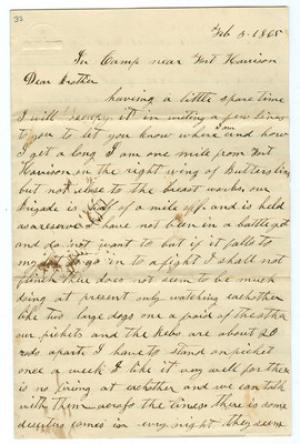 33
Feb 3. 1865
In Camp near Fort Harrison
Dear Brother
having a little spare time
I will occupy it in writing a few lines
to you to let you know where I am and how
I get a long I am one mile from Fort
Harrison on the right wing of Butlers line
but not close to the breast works, our
brigade is half of a mile off. and is held
as a reserve I have not been in a battle yet
and do not want to but if it falls to
my lot to go in to a fight I shall not
flinch there does not seem to be much
doing at present only watching eachother
like two large dogs one a fraid of the other
our pickets and the Rebs are about 20
rods apart I have to stand on picket
once a week I like it very well for there
is no firing at eachother and we can talk
with them across the lines there is some
deserters comes in every night they seem